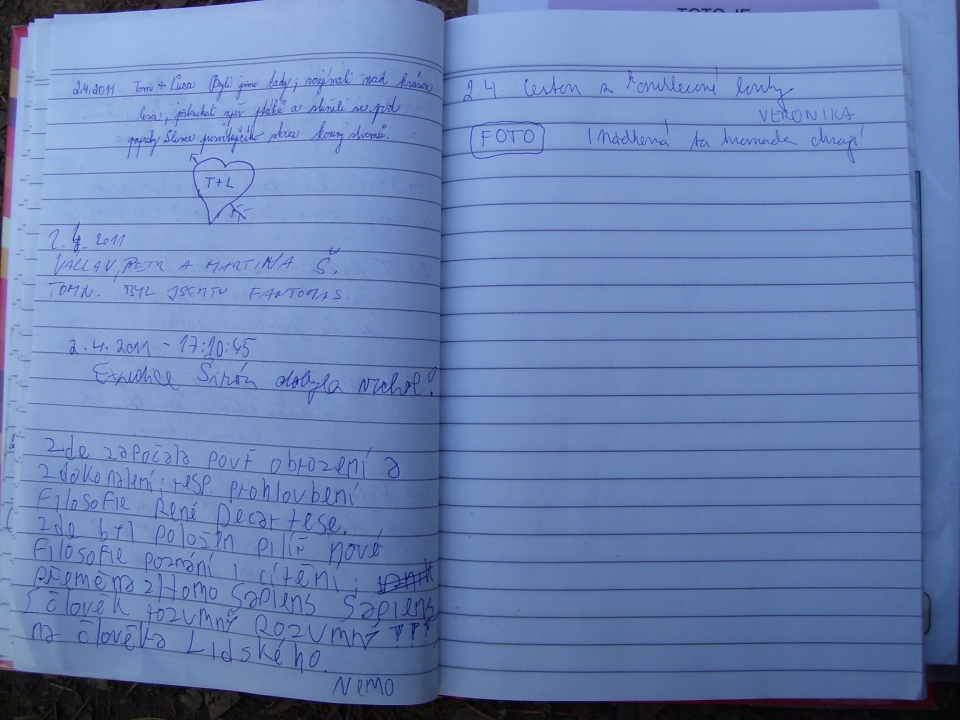 2.4.2011 Tom + Luca (Byli jsme tady, nad krásou
lesa, poslouchali zpěv ptáků a slunili se pod
paprsky Slunce skrze koruny stromů.
T+L
2.4.2011
VÁCLAV, PETR A MARTINA Š.
TOMN. BYL JSEM TU FANTOMAS
2.4.2011 - 17:10:45
Expedice dobyla vrchol!
zde započala obrození a
zdokonalení, resp. prohloubení
Filosofie René Decartese.
zde byl položen pilíř nové
Filosofie poznání i cítění;
přeměna z Homo Sapiens Sapiens
člověk rozumný ROZUMNÝ ???
na člověka Lidského.
Nemo
TOTO JE
2.4 cestou z louky
VERONIKA
FOTO Nádherná ta hromada